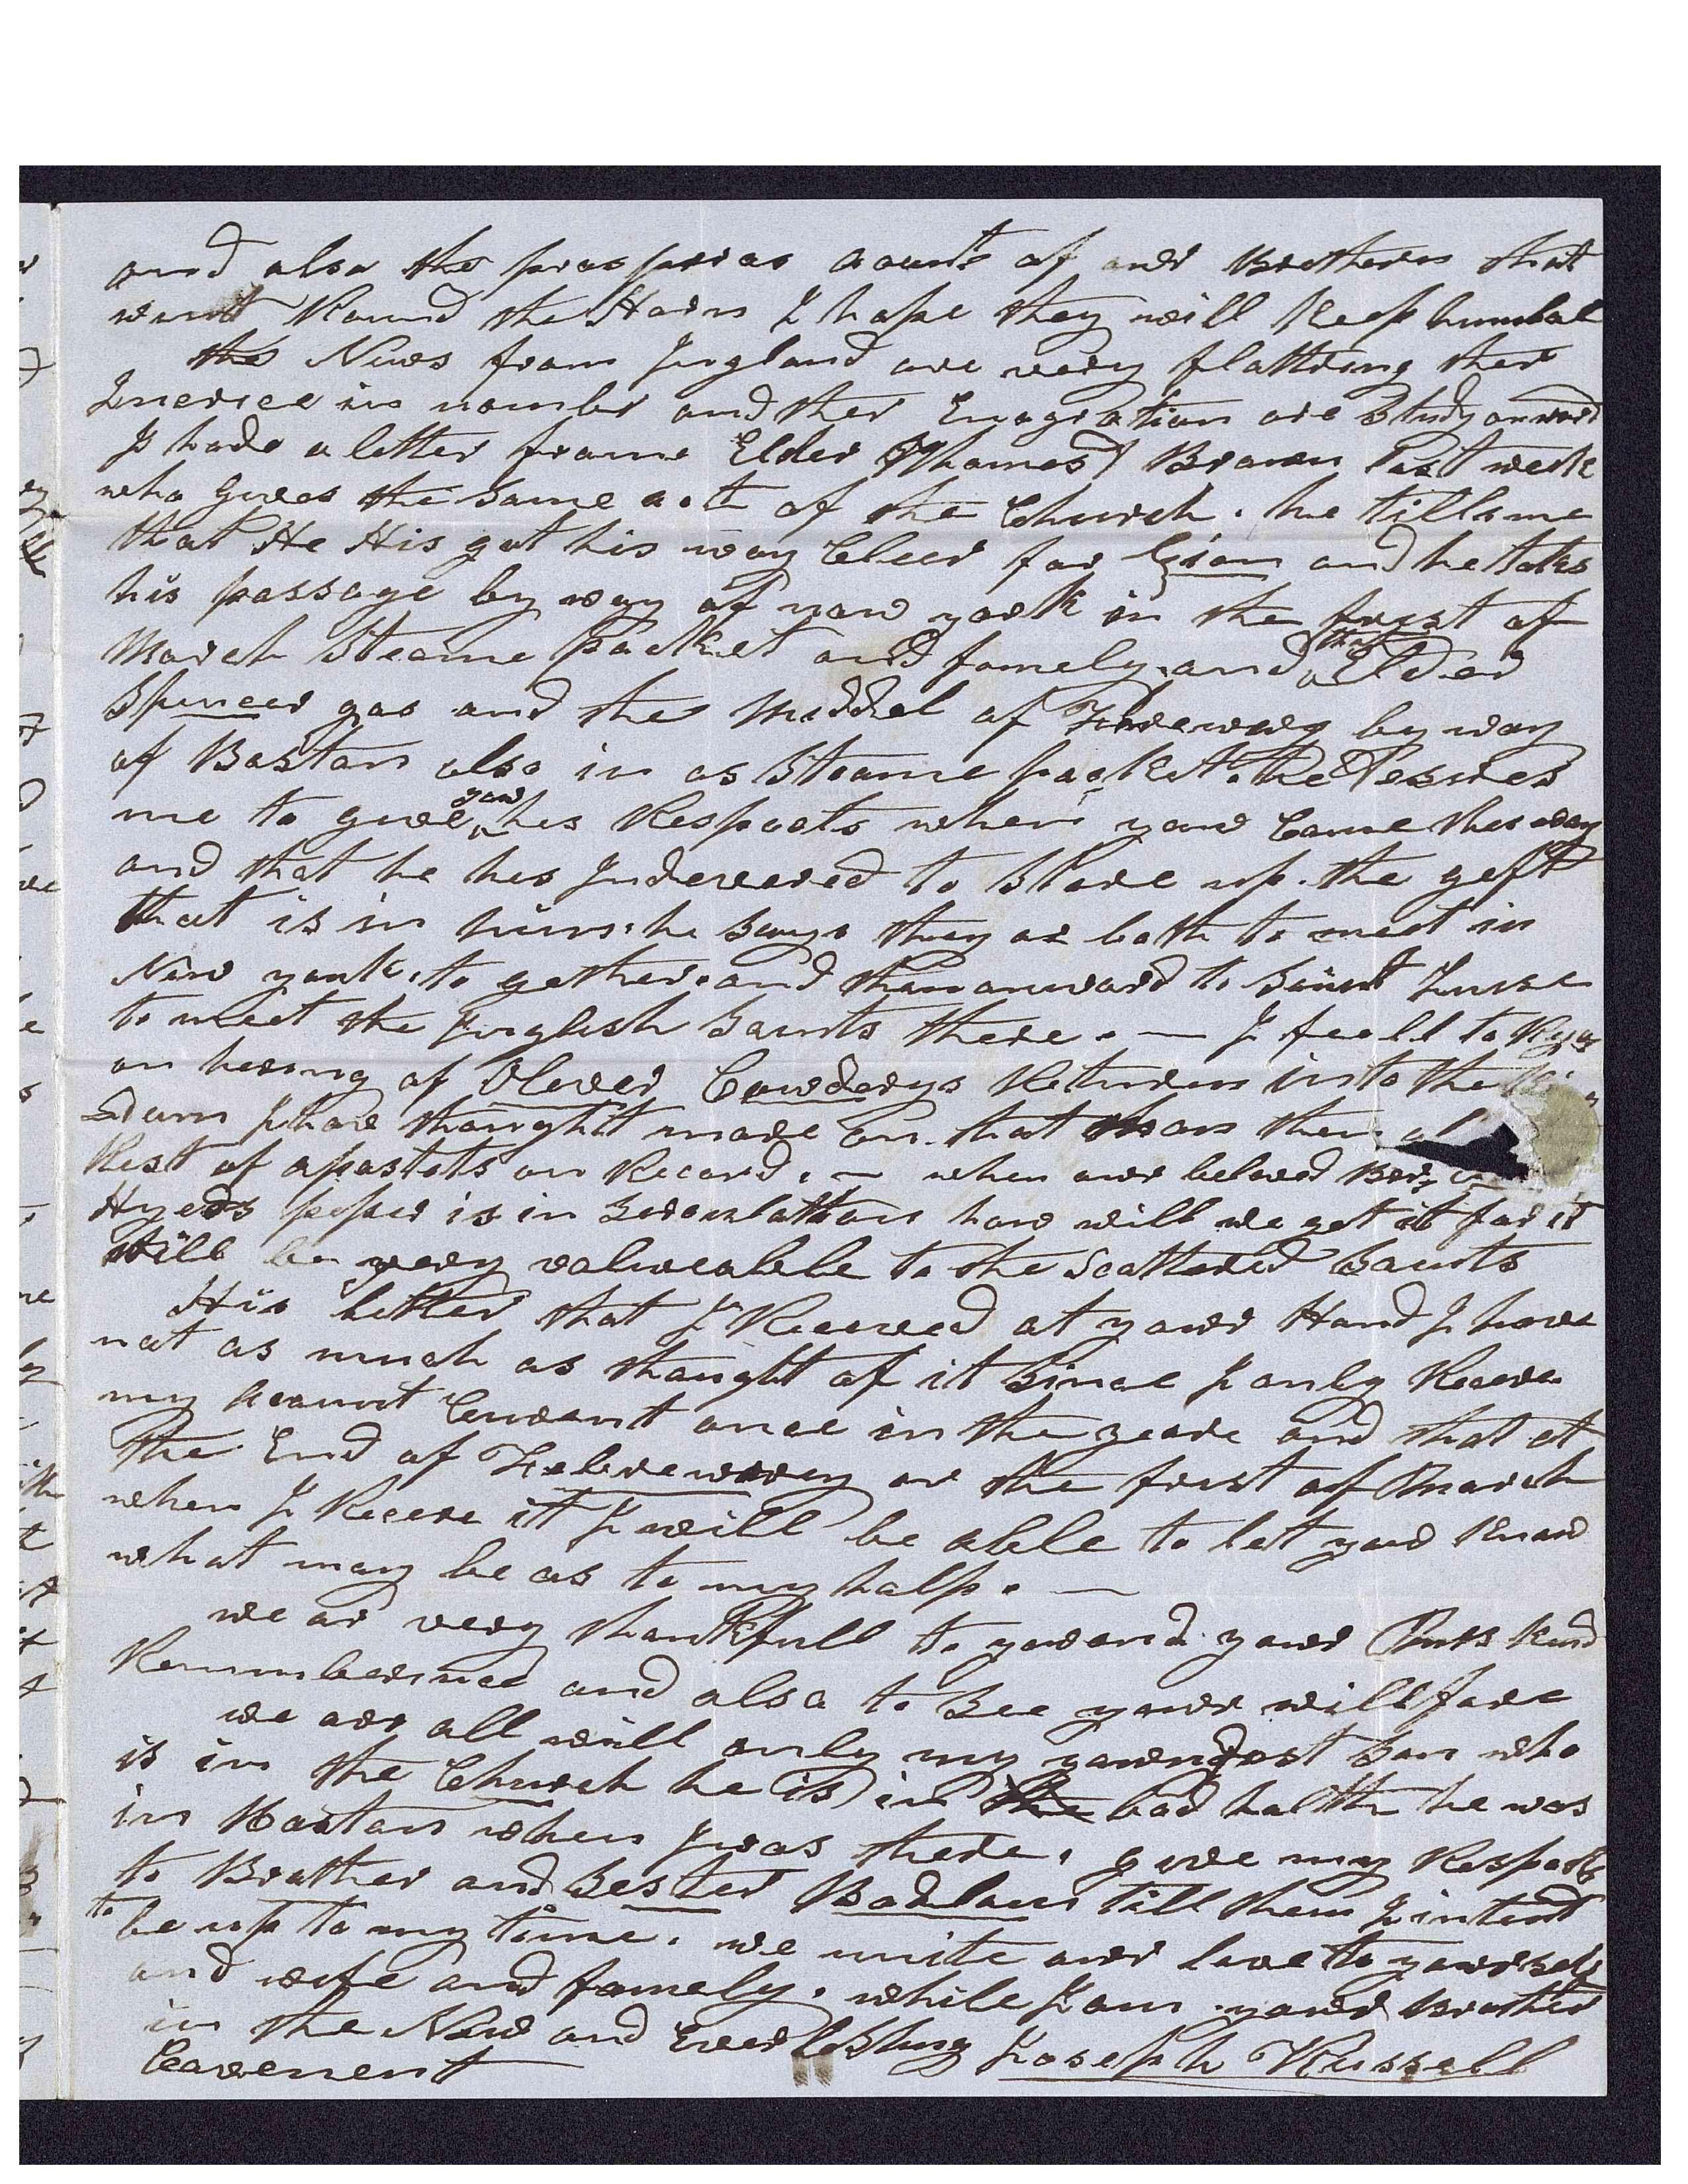 and also the prosperos acount of ower Brethern that
went Round the Horn I hope they will Keep humbal
the News from Ingland are very flattring ther
Inerice in nomber and ther Emegration are Study onward
I hade a letter frome Elder Thomas Brown Last week
who gives the same act of the Church. he tills me
that He His got his way Cleer for Zion and he taks
his passage by way of new york in the first of
March Steame Packket and famely. and that Elder
Spencer gos and the Middel of Febrewery by way
of Boston also in as Steame packet. he Desires
me to give you hes Respects when you Came thes way
and that he hes Indevered to Stere up. the geft
that is in him. he Says they ar both to meet in
New york. to gether. and then onward to Saint Luise
to meet the Inglish Saints there. — I feell to
on hering of Olever Cowderys Returen into the
dum I have thought more on that than the
Rest of apostets on Record. — when ower beloved
Hyeds peper is in Serculattion how will we get it for it
will be very valueabele to the Scattered Saints
His letter that I Receved at yower Hand I have
not as much as thought of it Since I only Receve
my Acount Current once in the yeare and that at
the End of Febrewerey or the first of March
when I Receve it I will be abele to let you Know
what may be as to my halp. —
we ar very thankfull to you and yower Kind
Rememberince and also to See yower willfare
we are all will only my youndest Son who
is in the Church he is in bad halth he was
in Boston when I was there. give my Respects
to Brother and Sester Badlam till them I intend
to be up to my time. we unite ower love to yowerself
and wife and famely. while I am yower Brother
in the New and Everlesting Joseph Russell
Covenent